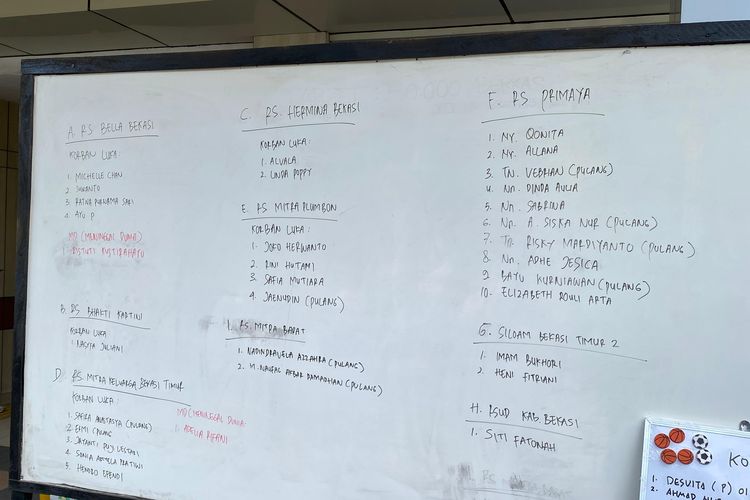 A. RS BELLA BEKASI
KORBAN LUKA:
1. MICHELLE CHAN
2. SUKANTO
3. RATNA PURNAMA SARI
4. AYU P
MD (MENINGGAL DUNIA)
1. RISTUTI KUSTIRAHAYU
B. RS BHAKTI KARTINI
KORBAN LUKA:
1. NASYA JULIANI
D. RS. MITRA KELUARGA BEKASI TIMUR
KORBAN LUKA:
1. SAFIRA ANASTASYA (PULANG)
2. EHMI (PULANG
3. JAYANTI PUJI LESTARI
4. SONIA ADTELA PRATIWI
5. HENDRO EFENDI
MD (MENINGGAL DUNIA:
1. ADELIA RIFANI
C. RS. HERMINA BEKASI
KORBAN LUKA:
1. ALVALA
2. LINDA POPPY
E. RS MITRA PLUMBON
KORBAN LUKA:
1. JOKO HERWANTO
2. RINI HUTAMI
3. SAFIA MUTIARA
4. JAENUDIN (PULANG)
I. RS. MITRA BARAT
1. NADINDRAYELA AZZAHRA (PULANG)
2. M. NAUFAL AKBAR RAMADHAN (PULANG)
F. RS PRIMAYA
1. NY. QONITA
2. NY. ALLANA
3. TN. VEBRIAN (PULANG)
4. Nn. DINDA AULIA
5. Nn. SABRINA
6. Nn. A. SISKA NUR (PULANG)
7. Tn. RISKY MARDIYANTO (PULANG)
8. Nn. ADHE JESICA
9 BAYU KURNIAWAN (PULANG)
10. ELIZABETH ROULI ARTA
G. SILOAM BEKASI TIMUR 2
1. IMAM BUKHORI
2. HENI FITRIANI
H. RSUD KAB. BEKASI
1. SITI FATONAH
KO
1. DESVITA (P) 01
2. AHMAD